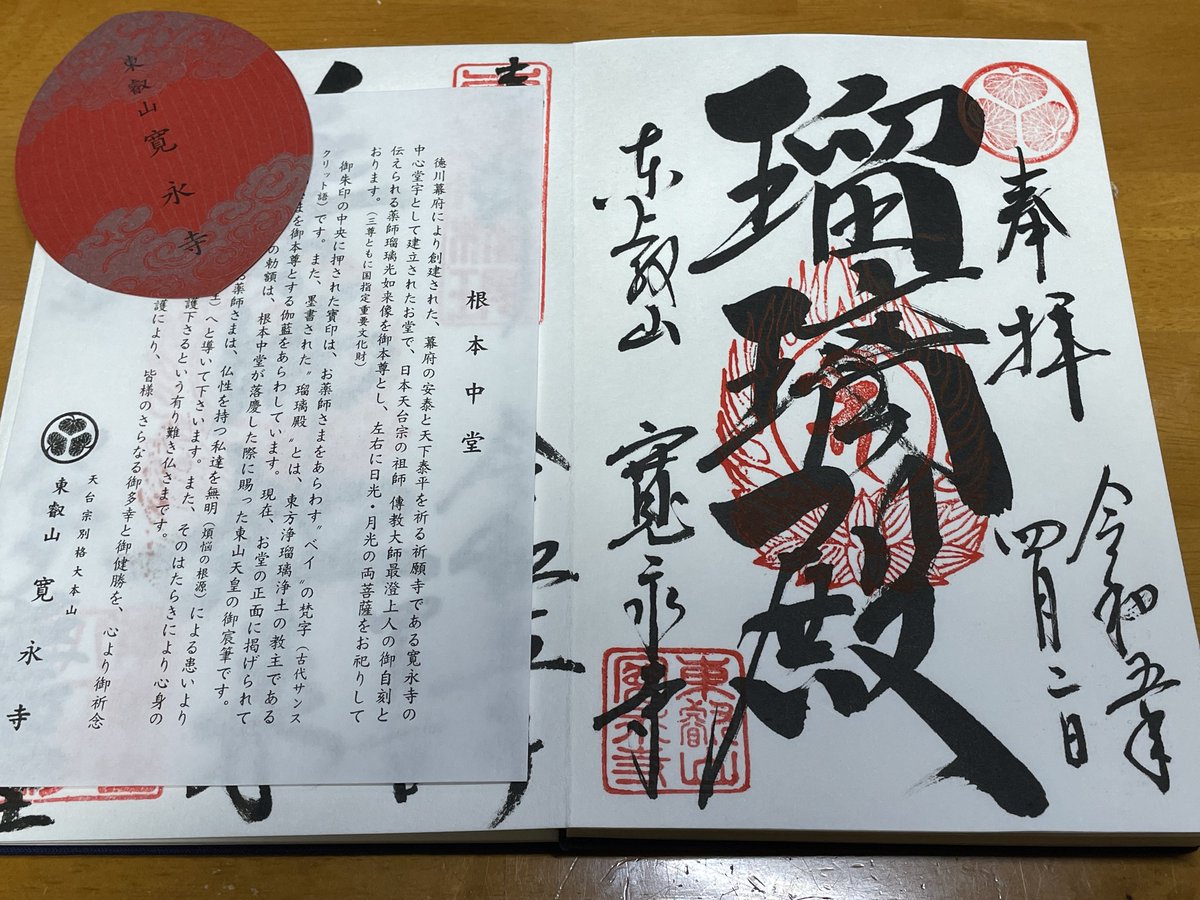 奉拝
令和五年
四月二日
瑠璃殿
東叡山 寛永寺
東叡山
寛永寺
東叡山 寛永寺
根本中堂
徳川幕府により創建された、幕府の安泰と天下泰平を祈る祈願寺である寛永寺の
中心堂宇として建立されたお堂で、日本天台宗の祖師 傳教大師最澄上人の御自刻と
伝えられる薬師瑠璃光如来像を御本尊とし、左右に日光・月光の両菩薩をお祀りして
おります。（三尊ともに国指定重要文化財）
御朱印の中央に押された寶印は、お薬師さまをあらわす〝ベイ〟の梵字（古代サンス
クリット語）です。また、墨書された〝瑠璃殿〟とは、東方浄瑠璃浄土の教主である
まを御本尊とする伽藍をあらわしています。現在、お堂の正面に掲げられて
の勅額は、根本中堂が落慶した際に賜った東山天皇の御宸筆です。
薬師さまは、仏性を持つ私達を無明（煩悩の根源）による患いより
）へと導いて下さいます。また、そのはたらきにより心身の
護下さるという有り難き仏さまです。
護により、皆様のさらなる御多幸と御健勝を、心より御祈念
天台宗別格大本山
東叡山 寛永寺